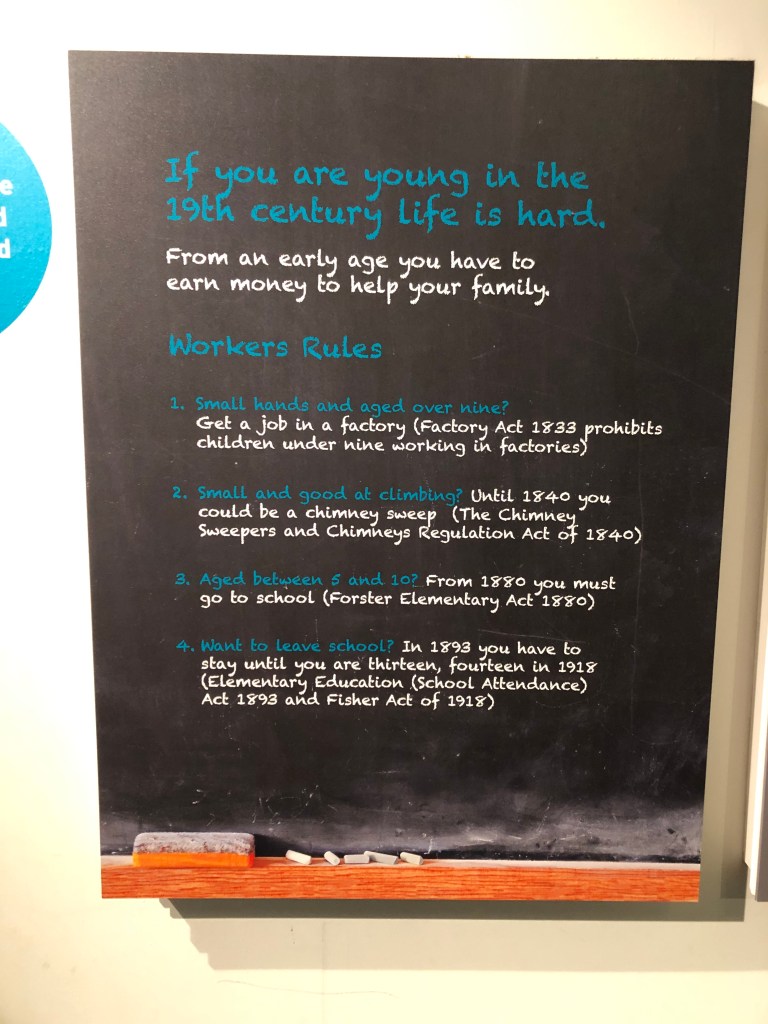 If you are young in the
19th century life is hard.
From an early age you have to
earn money to help your family.
Workers Rules
1. Small hands and aged over nine?
Get a job in a factory (Factory Act 1833 prohibits
children under nine working in factories)
2. Small and good at climbing? Until 1840 you
could be a chimney sweep (The Chimney
Sweepers and Chimneys Regulation Act of 1840)
3. Aged between 5 and 10? From 1880 you must
go to school (Forster Elementary Act 1880)
4. Want to leave school? In 1893 you have to
stay until you are thirteen, fourteen in 1918
(Elementary Education (School Attendance)
Act 1893 and Fisher Act of 1918)